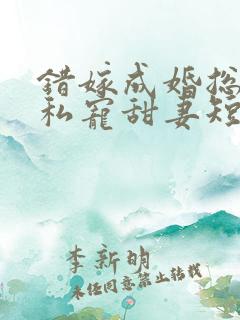 錯嫁成婚総
私寵甜妻短
李新明
未经同意禁止转载